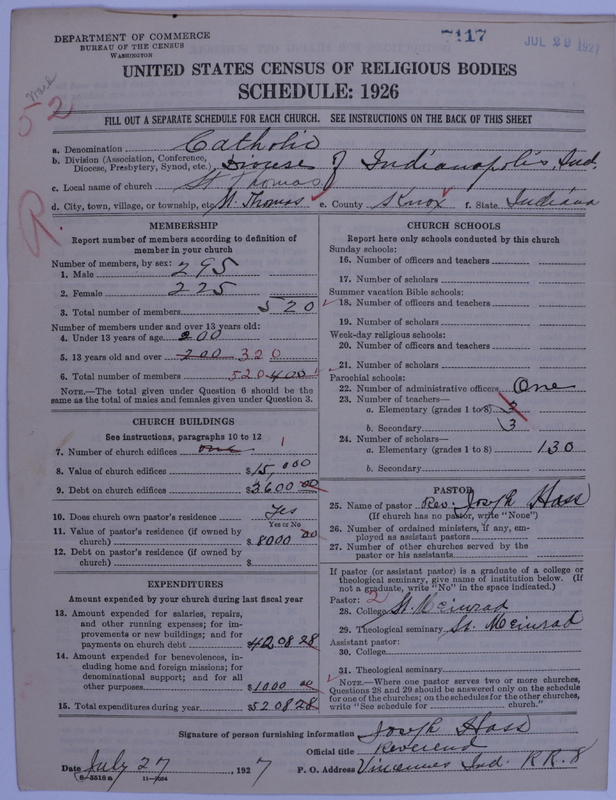 DEPARTMENT OF COMMERCE
BUREAU OF THE CENSUS
WASHINGTON
7117
JUL 29 1927
UNITED STATES CENSUS OF RELIGIOUS BODIES
SCHEDULE: 1926
52
FILL OUT A SEPARATE SCHEDULE FOR EACH CHURCH. SEE INSTRUCTIONS ON THE BACK OF THIS SHEET
a. Denomination Catholic
b. Division (Association, Conference, Diocese, Presbytery, Synod, etc.) Diocese of Indianapolis, Ind.
c. Local name of church St Thomas
d. City, town, village, or township, etc. St. Thomas e. County Knox f. State Indiana
R.
MEMBERSHIP
Report number of members according to definition of
member in your church
Number of members, by sex:
1. Male 295
2. Female 225
3. Total number of members 520
Number of members under and over 13 years old:
4. Under 13 years of age 200
5. 13 years old and over 200 320
6. Total number of members 520 400
NOTE.—The total given under Question 6 should be the
same as the total of males and females given under Question 3.
CHURCH BUILDINGS
See instructions, paragraphs 10 to 12
7. Number of church edifices one 1
8. Value of church edifices $15,000
9. Debt on church edifices $3600 00
10. Does church own pastor's residence Yes
Yes or No
11. Value of pastor's residence (if owned by
church) $ 8000 00
12. Debt on pastor's residence (if owned by
church) $
EXPENDITURES
Amount expended by your church during last fiscal year
13. Amount expended for salaries, repairs,
and other running expenses; for im-
provements or new buildings; and for
payments on church debt $4208 28
14. Amount expended for benevolences, in-
cluding home and foreign missions; for
denominational support; and for all
other purposes $1000 00
15. Total expenditures during year $5208 28
CHURCH SCHOOLS
Report here only schools conducted by this church
Sunday schools:
16. Number of officers and teachers
17. Number of scholars
Summer vacation Bible schools:
18. Number of officers and teachers
19. Number of scholars
Week-day religious schools:
20. Number of officers and teachers
21. Number of scholars
Parochial schools:
22. Number of administrative officers One
23. Number of teachers—
a. Elementary (grades 1 to 8) 3
b. Secondary 3
24. Number of scholars—
a. Elementary (grades 1 to 8) 130
b. Secondary
PASTOR
25. Name of pastor Rev. Joseph Hass
(If church has no pastor, write "None")
26. Number of ordained ministers, if any, em-
ployed as assistant pastors
27. Number of other churches served by the
pastor or his assistants
If pastor (or assistant pastor) is a graduate of a college or
theological seminary, give name of institution below. (If
not a graduate, write "No" in the space indicated.)
Pastor: 2
28. College St. Meinrad
29. Theological seminary St. Meinrad
Assistant pastor:
30. College
31. Theological seminary
NOTE.—Where one pastor serves two or more churches,
Questions 28 and 29 should be answered only on the schedule
for one of the churches; on the schedules for the other churches,
write "See schedule for church."
Signature of person furnishing information Joseph Hass
Official title Reverend
Date July 27, 1927 P. O. Address Vincennes Ind. R R. 8
8-3516 a 11-9064